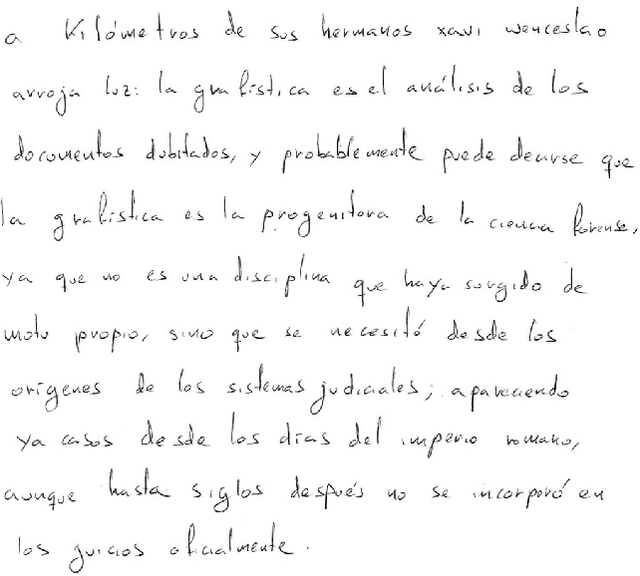 a Kilómetros de sus hermanos xavi wenceslao
arroja luz: la grafística es el análisis de los
documentos dubitados, y probablemente puede decirse que
la grafística es la progenitora de la ciencia forense,
ya que no es una disciplina que haya surgido de
motu propio, sino que se necesitó desde los
orígenes de los sistemas judiciales; apareciendo
ya casos desde los días del imperio romano,
aunque hasta siglos después no se incorporó en
los juicios oficialmente.